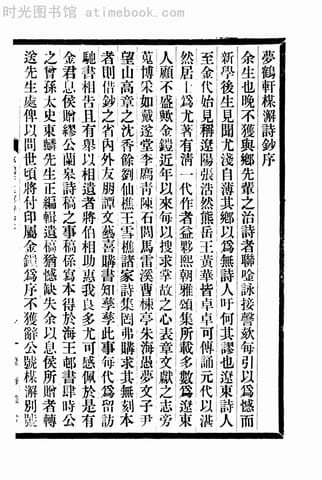 时光图书馆 - atimebook.com
夢鶴軒楳澥詩鈔序
余生也晚不獲與鄉先輩之治詩者聯唫詠接謦欬每引以爲憾而
新學後生見聞尤淺自薄其鄉以爲無詩人吁何其謬也遼東詩人
至金代始見稱遼陽張浩然熊岳王黃華皆卓卓可傳誦元代以湛
然居士爲尤著有清一代作者益夥熙朝雅頌集所載多數爲遼東
人顧不盛歟金鎧近年以來每以搜求掌故之心表章文獻之志旁
蒐博采如戴遂堂李鷹青陳石閭馬雷溪曹楝亭朱海愚夢文子尹
望山高章之沈香餘劉仙樵王雪樵諸家詩集罔弗購求其無刻本
者則借鈔之省內外友朋譚文藝喜購書知孳孳此事每代爲留訪
馳書相告且有舉以相遺者將伯相助惠我良多尤可感佩於是有
金君息侯贈繆公蘭皋詩稿之事稿係寫本得於海王邨書肆時公
之曾孫太史東麟先生正編輯遺稿猶憾缺失余以息侯所贈者轉
送先生處俾以問世頃將付印屬金鎧爲序不獲辭公號楳澥別號